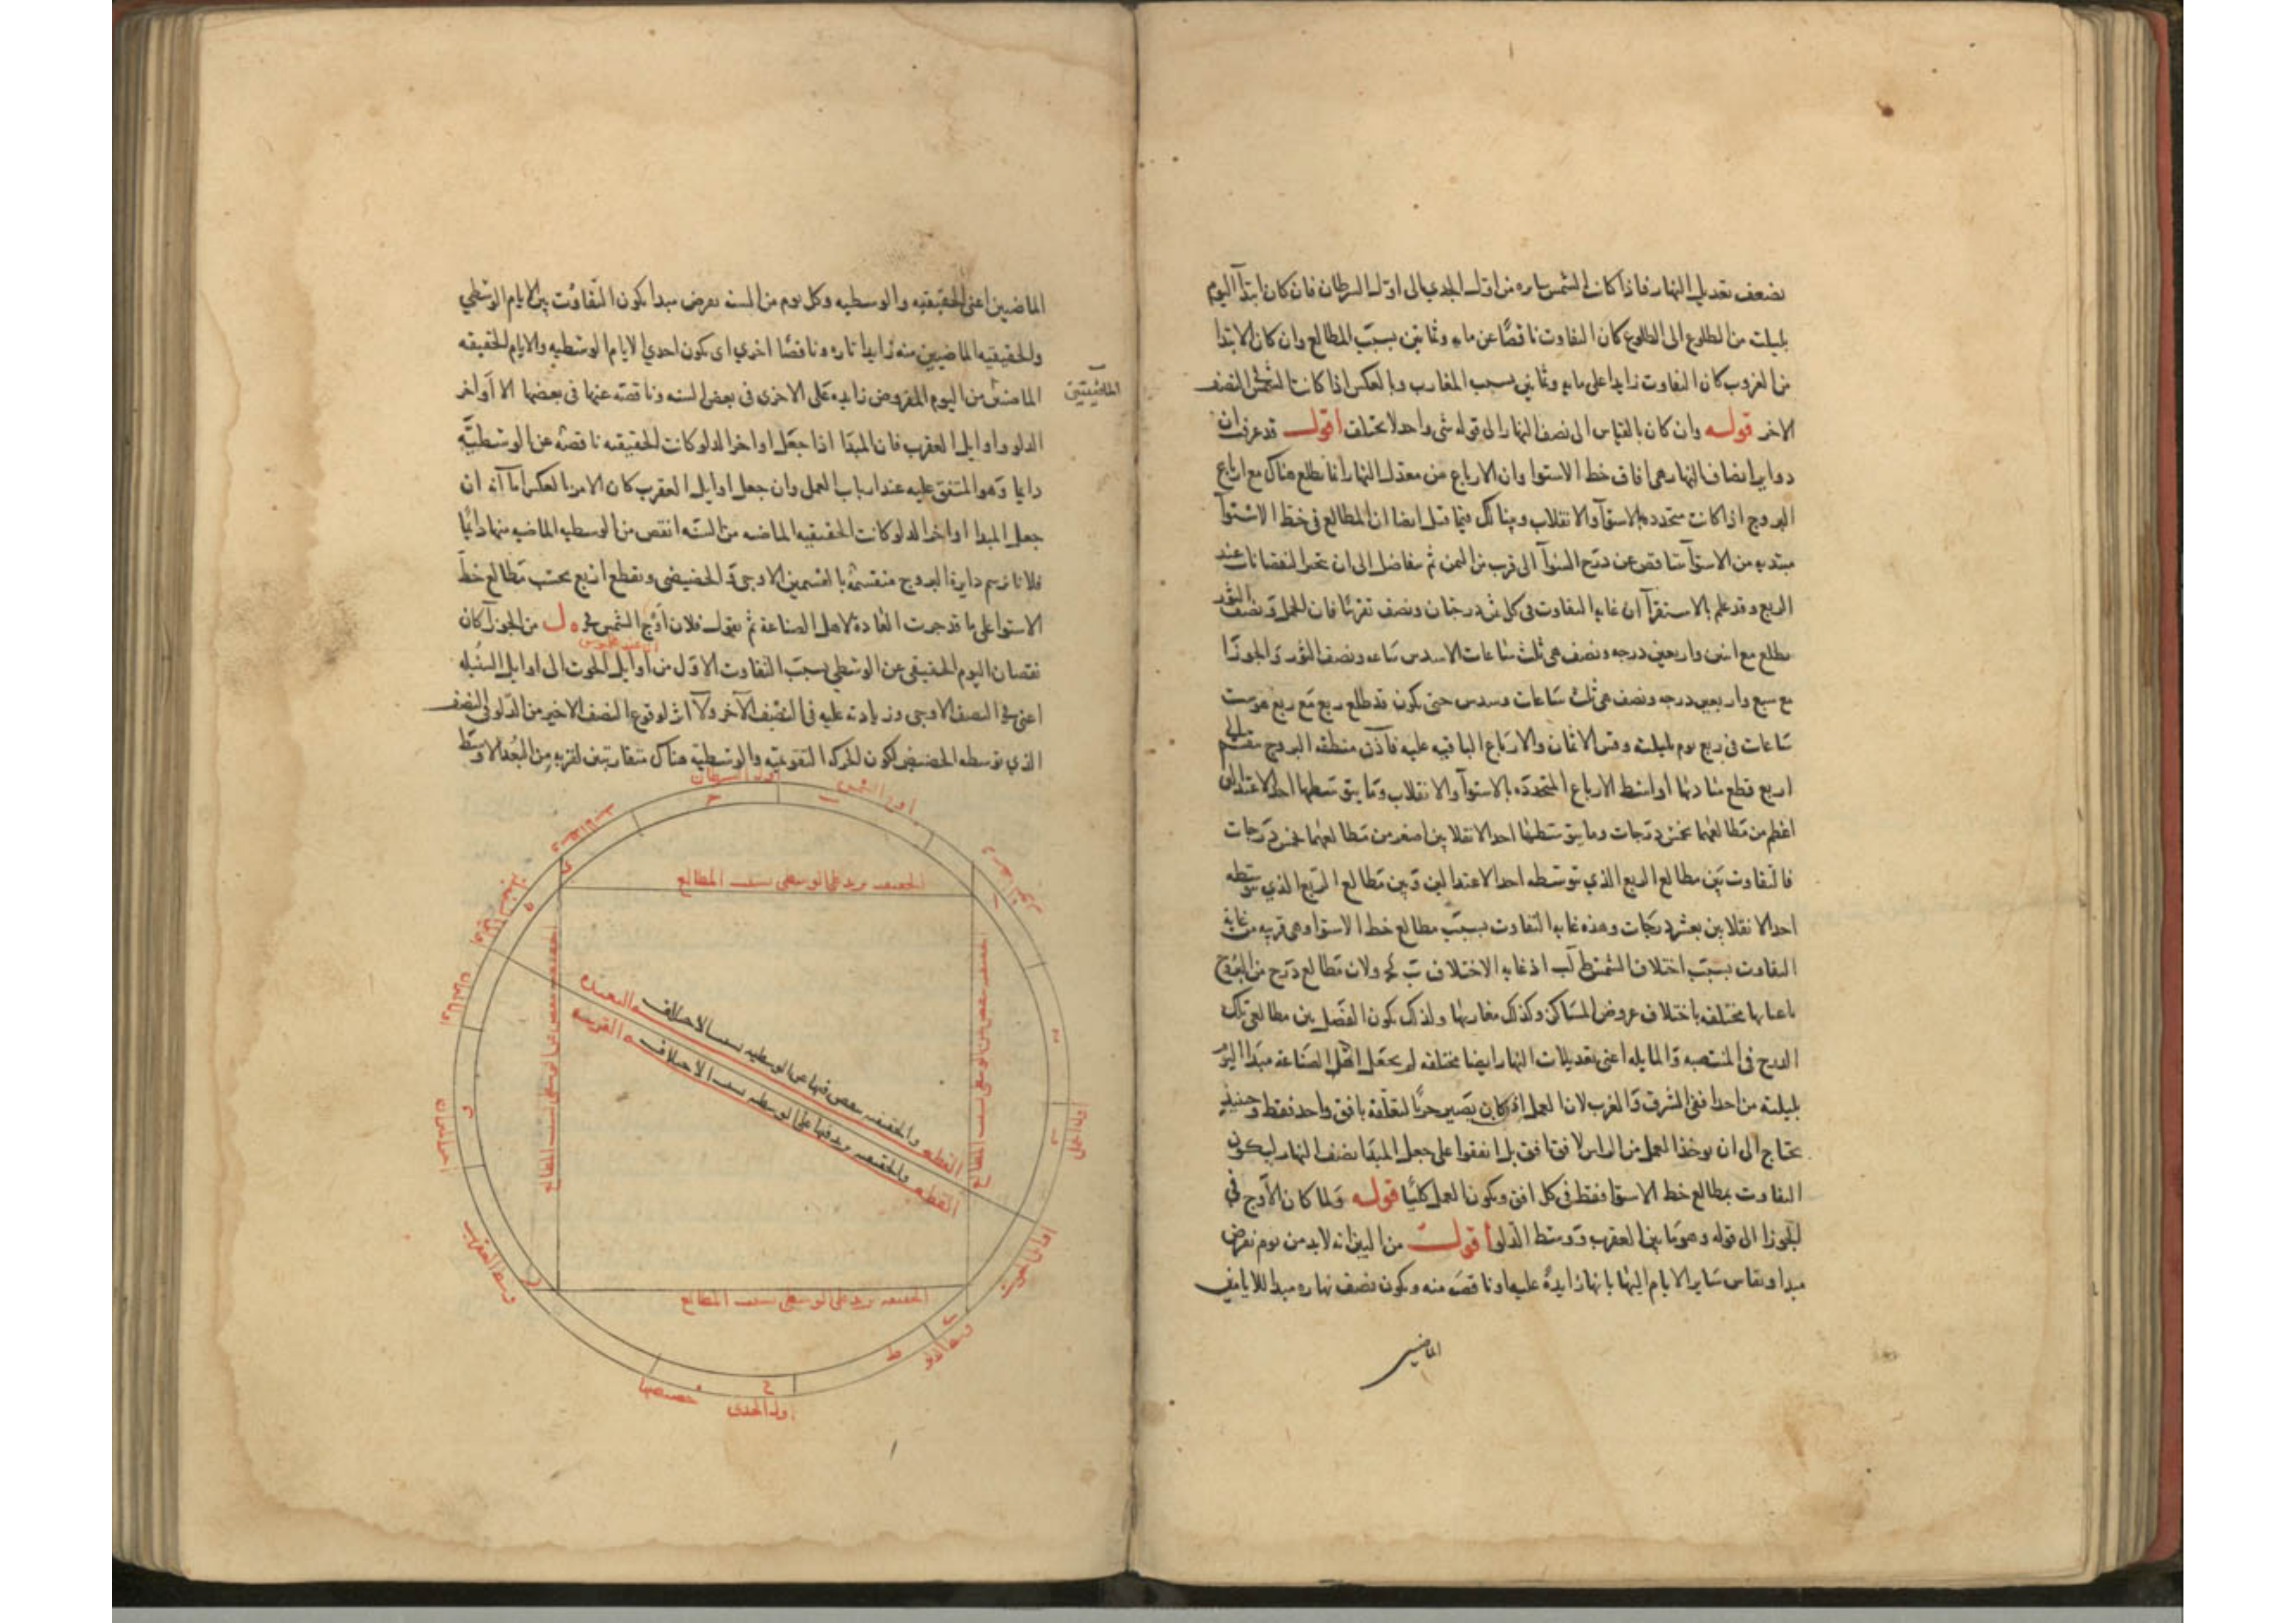 بضعف تعديل النهار فاذا كانت الشمس سايره من اول الجدي الى اول السرطان فان كان ابتدآ اليوم
بليلته من الطلوع الى الطلوع كان التفاوت ناقصًا عن مايه وثمانين بسبب المطالع وان كان الابتدا
من الغروب كان التفاوت زايدا على مايه وثمانين بسبب المغارب وبالعكس اذا كانت الشمس في النصف
الاخر قوله وان كان بالقياس الى نصف النهار الى قوله شى واحد لا يختلف اقول قد عرفت ان
دواير انصاف النهار هى افاق خط الاستوا وان الارباع من معدل النهار انما يطلع هناك مع ارباع
البروج اذا كانت متحدده بالاستوآ والانقلاب وبينا لك فيما قبل ايضا ان المطالع فى خط الاستوآ
مبتديه من الاستوآ تناقص عن درج السوآ الى قرب من الثمن ثم
الربع وقد علم بالاستقرآ ان غايه التفاوت فى كل ثمن درجتان ونصف تقريبًا فان الحمل ونصف الثور
يطلع مع اثنين واربعين درجه ونصف هى ثلث ساعات الا سدس ساعه ونصف الثور والجوزا
مع سبع واربعين درجه ونصف هى ثلث ساعات وسدس حتى يكون قد طلع ربع مع ربع هو ست
ساعات فى ربع يوم بليلته وقس الاثمان والارباع الباقيه عليه فاذن منطقه البروج تنقسم الى
اربع قطع مباديها اواسط الارباع المتحدده بالاستوآ والانقلاب وما يتوسطها احد الاعتدالين
اعظم من مطالعها بخمس درجات وما يتوسطها احد الانقلابين اصغر من مطالعها بخمس درجات
فالتفاوت بين مطالع الربع الذي توسطه احد الاعتدالين وبين مطالع الربع الذي توسطه
احد الانقلابين بعشر درجات وهذه غايه التفاوت بسبب مطالع خط الاستوا وهى قريبه من غايه
التفاوت بسبب اختلاف الشمس اذ غايه الاختلاف ولان مطالع درج من البروج
باعيانها مختلفه باختلاف عروض المساكن وكذلك مغاربها ولذلك يكون الفضل بين مطالعى تلك
الدرج فى المنتصبه والمايله اعنى تعديلات النهار ايضا مختلفه لم يجعل اهل الصناعه مبدا اليوم
بليلته من احد افقى المشرق والمغرب لان العمل اذ كان يصير جزئيا لتعلقه بافق واحد فقط وحينئذ
يحتاج الى ان يوخذ العمل من الراس لافق افق بل اتفقوا على جعل المبدا نصف النهار ليكون
التفاوت بمطالع خط الاستوا فقط فى كل افق ويكون العمل كليًا قوله ولما كان الاوج في
الجوزا الى قوله وهو ما بين العقرب ووسط الدلو اقول من البين انه لابد من يوم نفرض
مبدا ويقاس ساير الايام اليها بانها زايدة عليه او ناقصه منه ويكون نصف نهاره مبدا للايام
الماضيين
الماضيين اعنى الحقيقيه والوسطيه وكل يوم من السنه يفرض مبدا يكون التفاوت بين الايام الوسطي
والحقيقيه الماضيين منه زايدا تاره وناقصًا اخري اى يكون احدي الايام الوسطيه والايام الحقيقيه
الماضيتين
من اليوم المفروض زايده على الاخرى فى بعض السنه وناقصه عنها فى بعضها الا اواخر
الدلو واوايل العقرب فان المبدا اذا جعل اواخر الدلو كانت الحقيقيه ناقصه عن الوسطيّه
دايما وهو المتفق عليه عند ارباب العمل وان جعل اوايل العقرب كان الامر بالعكس اما آنه ان
جعل المبدا اواخر الدلو كانت الحقيقيه الماضيه من السنه انقص من الوسطيه الماضيه منها دائما
فلانا نرسم دايرة البروج منقسمه بالقسمين الاوجى والحضيضى وبقطع اربع بحسب مطالع خط
الاستوا على ما قد جرت العادة لاهل الصناعه ثم نقول فلان اوج الشمس في ه ل من الجوزآ كان
نقصان اليوم الحقيقى عن الوسطي بسبب التفاوت الاول من اوايل الحوت الى اوايل السنبله
اعنى فى النصف الاوجى وزيادته عليه فى النصف الآخر ولا اثر لوقوع النصف الاخير من الدلو فى النصف
الذي توسطه الحضيض لكون الحركه التقويميه والوسطيه هناك متقاربتين لقربه من البعد الاوسط
اول السرطان
اوج الشمس
وسط الاسد
الحقيقيه يزيد على الوسطى بسبب المطالع
اوايل السنبله
القطعه البعيده والحقيقيه ينقص فيها عن الوسطيه بسبب الاختلاف
القطعه القريبه والحقيقيه يزيد فيها على الوسطيه بسبب الاختلاف
الحقيقيه ينقص عن الوسطى بسبب المطالع
الحقيقيه ينقص عن الوسطى بسبب المطالع
اول الميزان
اول الحمل
اوايل الحوت
وسط العقرب
الحقيقيه يزيد على الوسطى بسبب المطالع
وسط الدلو
حضيضها
اول الجدى